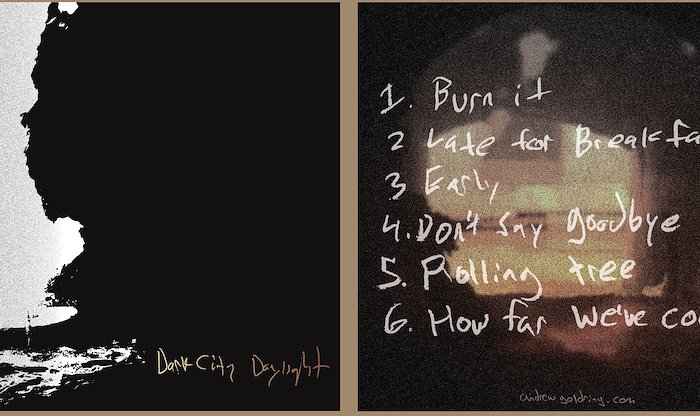 Dark City Daylight
1. Burn it
2 Late for Breakfa
3 Early
4. Don't say goodbye
5. Rolling tree
6. How far we've co
andrewgoldring.com